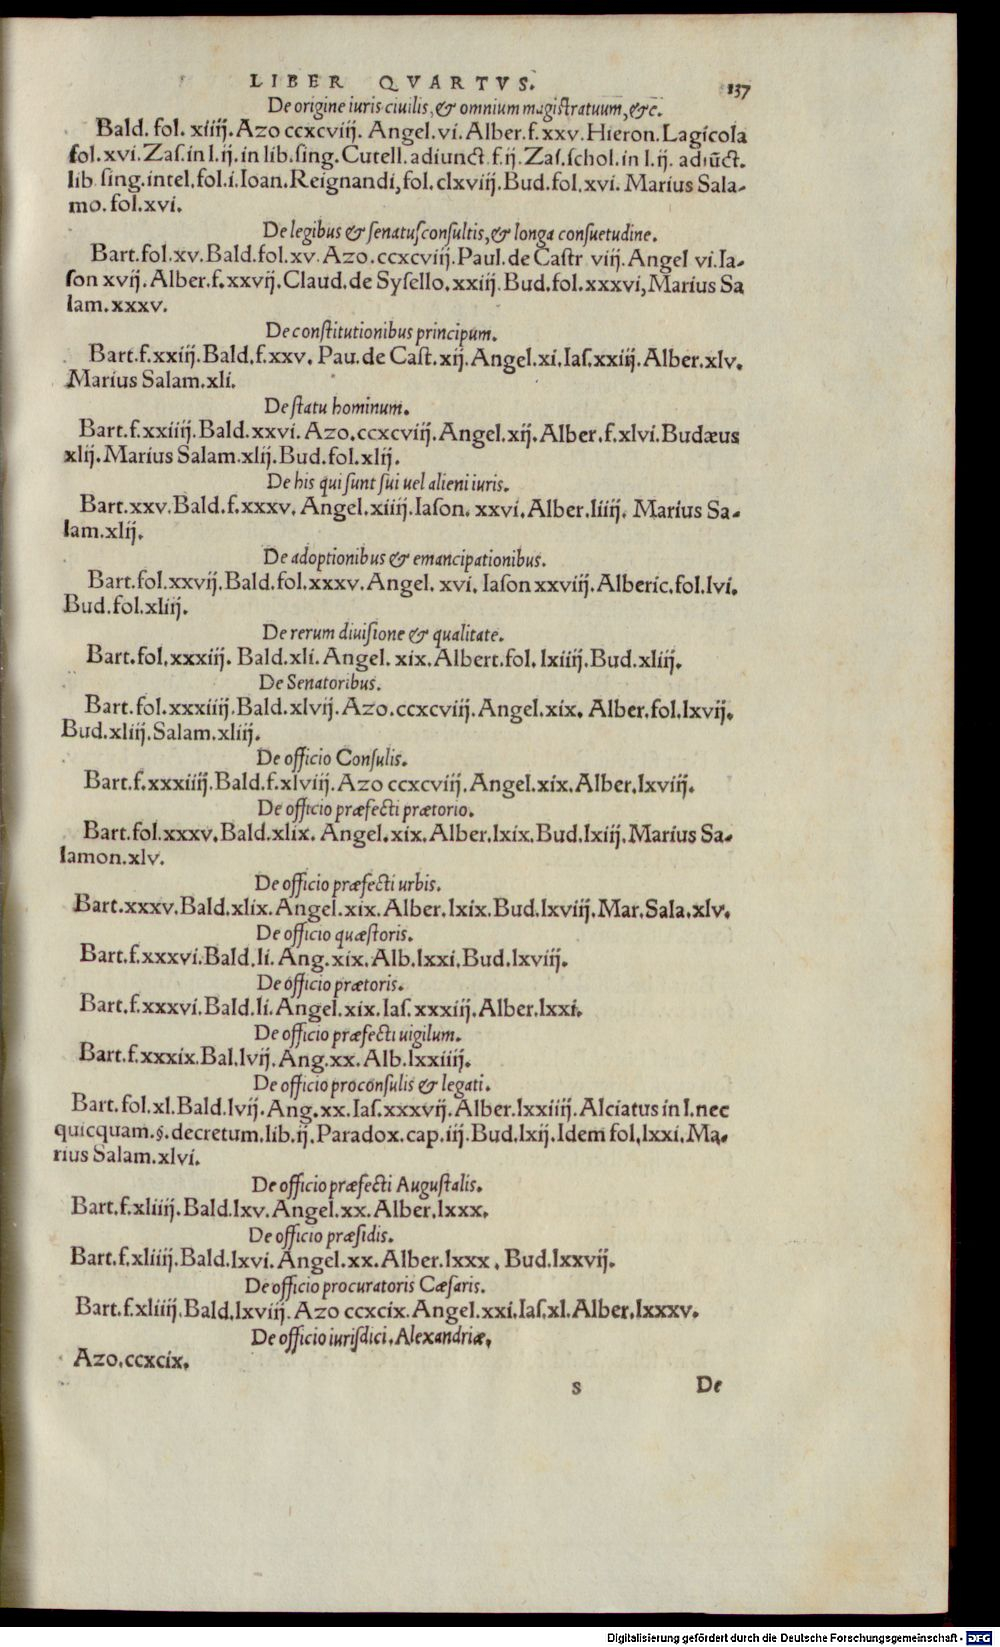 LIBER QVARTVS. 137
De origine iuris ciuilis, & omnium magistratuum, &c.
Bald. fol. xiiij. Azo ccxcviij. Angel. vi. Alber. f. xxv. Hieron. Lagicola
fol. xvi. Zas. in l. ij. in lib. sing. Cutell. adiunct. f. ij. Zas. schol. in l. ij. adiūct.
lib. sing. intel. fol. i. Ioan. Reignandi, fol. clxviij. Bud. fol. xvi. Marius Sala-
mo. fol. xvi.
De legibus & senatusconsultis, & longa consuetudine.
Bart. fol. xv. Bald. fol. xv. Azo. ccxcviij. Paul. de Castr. viij. Angel. vi. Ia-
son xvij. Alber. f. xxvij. Claud. de Sysello. xxiij. Bud. fol. xxxvi, Marius Sa
lam. xxxv.
De constitutionibus principum.
Bart. f. xxiij. Bald. f. xxv. Pau. de Cast. xij. Angel. xi. Ias. xxiij. Alber. xlv.
Marius Salam. xli.
De statu hominum.
Bart. f. xxiiij. Bald. xxvi. Azo. ccxcviij. Angel. xij. Alber. f. xlvi. Budæus
xlij. Marius Salam. xlij. Bud. fol. xlij.
De his qui sunt sui uel alieni iuris.
Bart. xxv. Bald. f. xxxv. Angel. xiiij. Iason. xxvi. Alber. liiij. Marius Sa-
lam. xlij.
De adoptionibus & emancipationibus.
Bart. fol. xxvij. Bald. fol. xxxv. Angel. xvi. Iason xxviij. Alberic. fol. lvi.
Bud. fol. xliij.
De rerum diuisione & qualitate.
Bart. fol. xxxiij. Bald. xli. Angel. xix. Albert. fol. lxiiij. Bud. xliij.
De Senatoribus.
Bart. fol. xxxiiij. Bald. xlvij. Azo. ccxcviij. Angel. xix. Alber. fol. lxvij.
Bud. xliij. Salam. xliij.
De officio Consulis.
Bart. f. xxxiiij. Bald. f. xlviij. Azo ccxcviij. Angel. xix. Alber. lxviij.
De officio præfecti prætorio.
Bart. fol. xxxv. Bald. xlix. Angel. xix. Alber. lxix. Bud. lxiij. Marius Sa-
lamon. xlv.
De officio præfecti urbis.
Bart. xxxv. Bald. xlix. Angel. xix. Alber. lxix. Bud. lxviij. Mar. Sala. xlv.
De officio quæstoris.
Bart. f. xxxvi. Bald. li. Ang. xix. Alb. lxxi. Bud. lxviij.
De officio prætoris.
Bart. f. xxxvi. Bald. li. Angel. xix. Ias. xxxiij. Alber. lxxi.
De officio præfecti uigilum.
Bart. f. xxxix. Bal. lvij. Ang. xx. Alb. lxxiiij.
De officio proconsulis & legati.
Bart. fol. xl. Bald. lvij. Ang. xx. Ias. xxxvij. Alber. lxxiiij. Alciatus in l. nec
quicquam. §. decretum. lib. ij. Paradox. cap. iij. Bud. lxij. Idem fol. lxxi. Ma-
rius Salam. xlvi.
De officio præfecti Augustalis.
Bart. f. xliiij. Bald. lxv. Angel. xx. Alber. lxxx.
De officio præsidis.
Bart. f. xliiij. Bald. lxvi. Angel. xx. Alber. lxxx. Bud. lxxvij.
De officio procuratoris Cæsaris.
Bart. f. xliiij. Bald. lxviij. Azo ccxcix. Angel. xxi. Ias. xl. Alber. lxxxv.
De officio iurisdici. Alexandriæ.
Azo. ccxcix.
s De
Digitalisierung gefördert durch die Deutsche Forschungsgemeinschaft - DFG